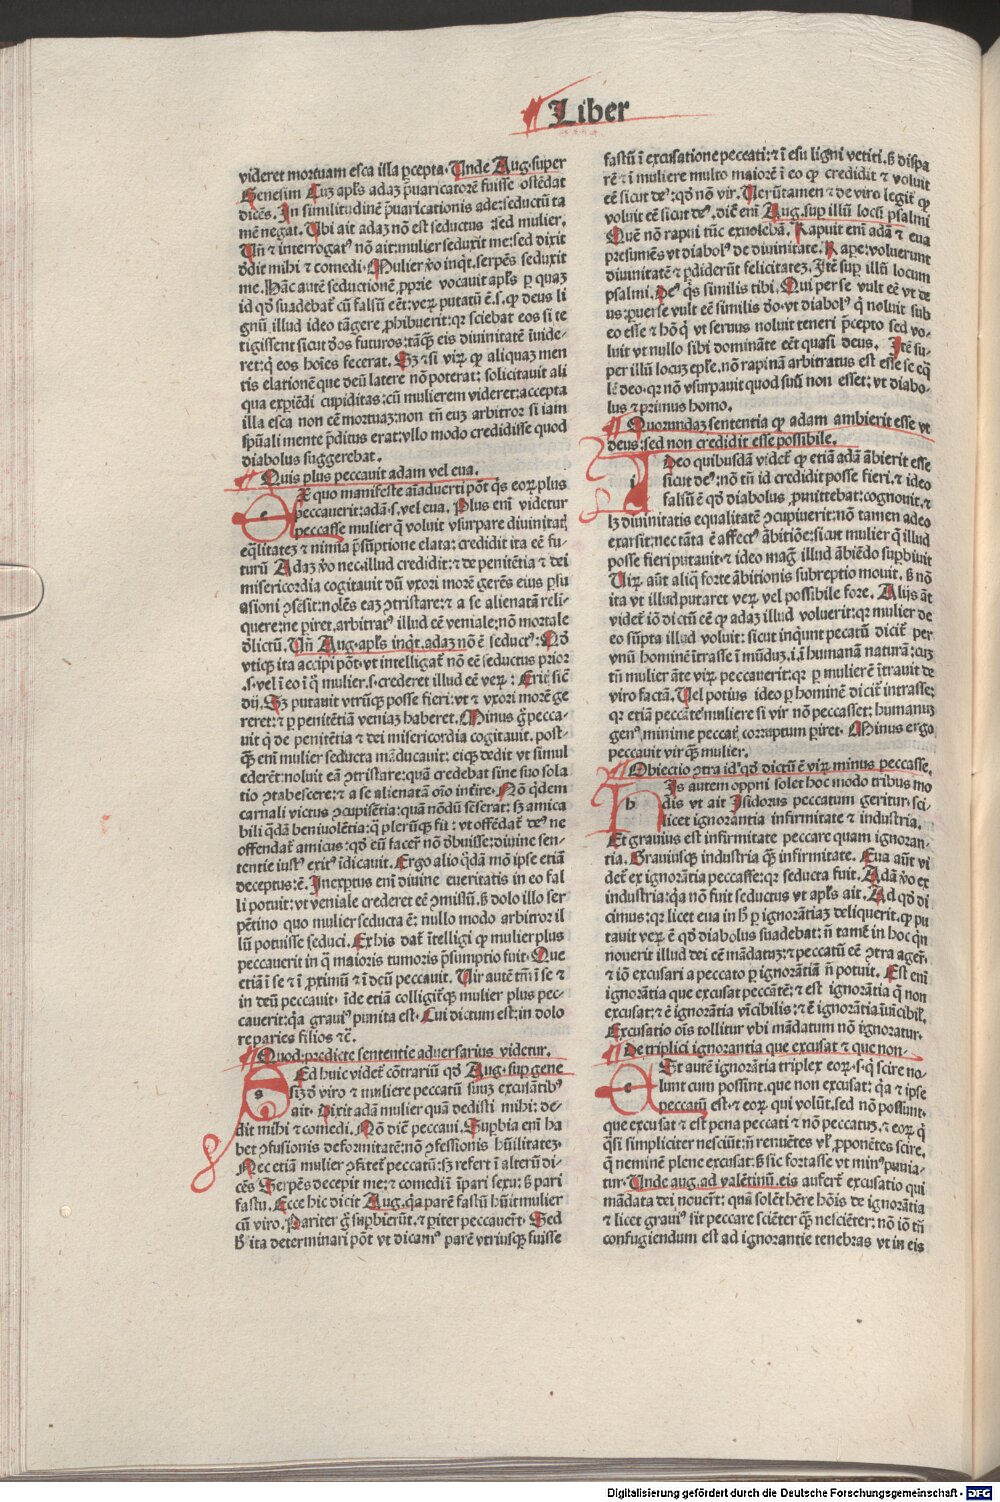 Liber
videret mortuam esca illa p̲cepta. Unde Aug. super
Genesim Cuz apl's adaz p̄uaricatorē fuisse ostēdat
dicēs. In similitudinē p̄uaricationis ade: seductū ta
mē negat. Ubi ait adaz nō est seductus: sed mulier.
Uñ ⁊ interrogatꝰ nō ait: mulier seduxit me: sed dixit
dedit mihi ⁊ comedi. Mulier v̄o inqͥt. serpēs seduxit
me. Hāc autē seductionē ꝓprie vocauit apl's ꝑ quaz
id qd̄ suadebat̄ cū falsū eēt: veꝝ putatū ē. s. ꝙ deus li
gnū illud ideo tāgere ꝓhibuerit: qꝛ sciebat eos si te
tigissent sicut d̓os futuros: tāqꝫ eis diuinitatē īuide-
ret: qͥ eos hoīes fecerat. Sꝫ ⁊ si viꝝ ꝙ aliquaz men
tis elationē que deū latere nō poterat: solicitauit ali
qua exꝑiēdi cupiditas: cū mulierem videret: accepta
illa esca non eē mortuaz: non tñ eum arbitror si iam
sp̄uāli mente p̄ditus erat: vllo modo credidisse quod
diabolus suggerebat.
Quis plus peccauit adam vel eua.
EX quo manifeste aīaduerti pōt qͥs eoꝝ plus
peccauerit: adā. s. vel eua. Plus enī videtur
peccasse mulier que voluit vsurpare diuinitatꝭ
eq̄litatez ⁊ nimia p̄sūptione elata: credidit ita eē fu-
turū Adaz v̄o nec illud credidit: ⁊ de penitētia ⁊ dei
misericordia cogitauit dū vxori morē gerēs eius ꝑsu
asioni ꝯsēsit: nolēs eaz ꝯtristare: ⁊ a se alienatā reli-
quere: ne ꝑiret. arbitratꝰ illud eē veniale: nō mortale
d̓lictū. Uñ Aug. apl's inqͥt. adaz nō ē seductꝰ: Qd̄
vtiqꝫ ita accipi pōt. vt intelligat̄ nō eē seductus prior
. s. vel ī eo ī qͦ mulier. s. crederet illud eē veꝝ: Eritꝭ sic̄
dij. Sꝫ putauit vtrūqꝫ posse fieri: vt ⁊ vxori morē ge
reret: ⁊ ꝑ penitētiā veniaz haberet. Minus g̊ pecca-
uit qͥ de penitētia ⁊ dei misericordia cogitauit. post-
qꝫ enī mulier seducta māducauit: eiqꝫ dedit vt simul
ederēt: noluit eā ꝯtristare: quā credebat sine suo sola
tio ꝯtabescere: ⁊ a se alienatā oīo īterire. Nō qͥdem
carnali victus ꝯcupiscētia: quā nōdū sēserat: sꝫ amica
bili qͣdā beniuolētia: qͣ plerūqꝫ fit: vt offēdat̄ deꝰ ne
offendat̄ amicus: qd̄ eū facer̄ nō d̓buisse: diuine sen-
tentie iustꝰ exitꝰ īdicauit. Ergo alio qͦdā mō ipse etiā
deceptus: ē. Inexpertus enī diuine seueritatis in eo fal
li potuit: vt veniale crederet eē ꝯmissū. sꝫ dolo illo ser
pētino quo mulier seducta ē: nullo modo arbitror il
lū potuisse seduci. Ex his dat̄ ītelligi ꝙ mulier plus
peccauerit in qͣ maioris tumoris p̄sumptio fuit. Que
etiā ī se ⁊ ī ꝓximū ⁊ ī deū peccauit. Uir autē tm̄ ī se ⁊
in deū peccauit. īde etiā colligit̄ qꝫ mulier plus pec-
cauerit: qꝛ grauiꝰ punita est. Cui dictum est: in dolo
re paries filios ⁊c̄.
Quod predicte sententie aduersarius videtur.
SEd huic videt̄ cōtrariū qd̄ Aug. sup gene
siz d̓ viro ⁊ muliere peccatū suuz excusātibꝰ
ait. Dixit adā mulier quā dedisti mihi: de-
dit mihi ⁊ comedi. Nō dicit peccaui. Suꝑbia enī ha
bet ꝯfusionis deformitatē: nō ꝯfessionis hūilitatez.
Nec etiā mulier ꝯfitet̄ peccatū: sꝫ refert ī alterū di-
cēs Serpēs decepit me: ⁊ comedi ī ipari sexu: sꝫ pari
fastu. Ecce hic dicit Aug. qꝛ parē fastū hūit mulier
cū viro. Pariter g̊ suꝑbierūt. ⁊ ꝑiter peccauer̄t. Sed
sꝫ ita determinari pōt vt dicamꝰ parē vtriusqꝫ fuisse
fastū ī excusatione peccati: ⁊ ī esu ligni vetiti. sꝫ dispa
rē ⁊ ī muliere multo maiorē ī eo ꝙ credidit ⁊ voluit
eē sicut deꝰ: qd̄ nō vir. Uerūtamen ⁊ de viro legit̄ ꝙ
voluit eē sicut deꝰ. dicit enī Aug. sup illū locū psalmi
Que nō rapui tūc exsoluebā. Rapuit enī adā ⁊ eua
presumēs vt diabolꝰ de diuinitate. Rape: voluerunt
diuinitatē ⁊ ꝑdiderūt felicitatez. Itē suꝑ illū locum
psalmi. Deꝰ qͥs similis tibi. Qui per se vult eē vt de
us: ꝑuerse vult eē similis d̓o. vt diabolꝰ qͥ noluit sub
eo esse ⁊ hō qͥ vt seruus noluit teneri p̄cepto sed vo-
luit vt nullo sibi dominante eēt quasi deus. Itē su-
per illū locuz ep̄le. nō rapinā arbitratus est esse se eq̄
lē deo. qꝛ nō vsurpauit quod suū non esset: vt diabo-
lus ⁊ primus homo.
Quorundaz sententia ꝙ adam ambierit esse vt
deus: sed non credidit esse possibile.
IDeo quibusdā videt̄ ꝙ etiā adā ābierit esse
sicut deꝰ: nō tñ id credidit posse fieri. ⁊ ideo
falsū ē qd̄ diabolus ꝓmittebat: cognouit. ⁊
lꝫ diuinitatis equalitatē ꝯcupiuerit: nō tamen adeo
exarsit: nec tāta ē affectꝰ ābitiōe: sicut mulier qͣ illud
posse fieri putauit: ⁊ ideo magꝭ illud ābiēdo suꝑbiuit
Uiꝝ aūt aliqͣ forte ābitionis subreptio mouit. sꝫ nō
ita vt illud putaret veꝝ vel possibile fore. Alijs āt
videt̄ iō dictū eē ꝙ adaz illud voluerit: qꝛ mulier de
eo sūpta illud voluit: sicut inqͥunt peccatū dicit̄ per
vnū hominē ītrasse ī mūduz. i. ī humanā naturā: cuz
tñ mulier āte viꝝ peccauerit: qꝛ ꝑ mulierē ītrauit de
viro factā. Uel potius ideo ꝑ hominē dicit̄ intrasse:
qꝛ etiā peccāte muliere si vir nō peccasset: humanuz
genꝰ minime peccatꝭ corruptum ꝑiret. Minus ergo
peccauit vir qꝫ mulier.
Obiectio ꝯtra id qd̄ dictū ē viꝝ minus peccasse.
HIs autem opponi solet hoc modo tribus mo
dis vt ait Isidorus peccatum geritur. sci-
licet ignorantia infirmitate ⁊ industria.
Et grauius est infirmitate peccare quam ignoran-
tia. Grauiusqꝫ industria qꝫ infirmitate. Eua aūt vi
det̄ ex ignorātia peccasse: qꝛ seducta fuit. Adā v̄o ex
industria: qꝛ nō fuit seductus vt apl's ait. Ad qd̄ di
cimus: qꝛ licet eua in h̄ ꝑ ignorātiaz deliquerit. ꝙ pu
tauit veꝝ ē qd̄ diabolus suadebat: ñ tamē in hoc qͥn
nouerit illud dei eē mādatuz: ⁊ peccatū eē ꝯtra ager̄.
⁊ iō excusari a peccato ꝑ ignorātiā ñ potuit. Est enī
ignorātia que excusat peccātē: ⁊ est ignorātia qͣ non
excusat: ⁊ ē ignorātia vīcibilis: ⁊ ē ignorātia īuīcibilꝭ.
Excusatio oīs tollitur vbi mādatum nō ignoratur.
De triplici ignorantia que excusat ⁊ que non.
ESt autē ignorātia triplex eoꝝ. s. qͥ scire no-
lunt cum possint. que non excusat: qꝛ ⁊ ipse
peccatū est. ⁊ eoꝝ qui volūt. sed nō possunt.
que excusat ⁊ est pena peccati ⁊ nō peccatuz. ⁊ eoꝝ qͥ
qͣsi simpliciter nesciūt: ñ renuētes vl' ꝓponētes scire.
que neminē plene excusat: sꝫ sic fortasse vt minꝰ punia-
tur. Unde aug. ad valētinū. eis aufert̄ excusatio qui
mādata dei nouer̄t: quā solēt hēre hōīs de ignorātia
⁊ licet grauiꝰ sit peccare sciēter qꝫ nesciēter: nō iō tñ
confugiendum est ad ignorantie tenebras vt in eis
Digitalisierung gefördert durch die Deutsche Forschungsgemeinschaft - DFG